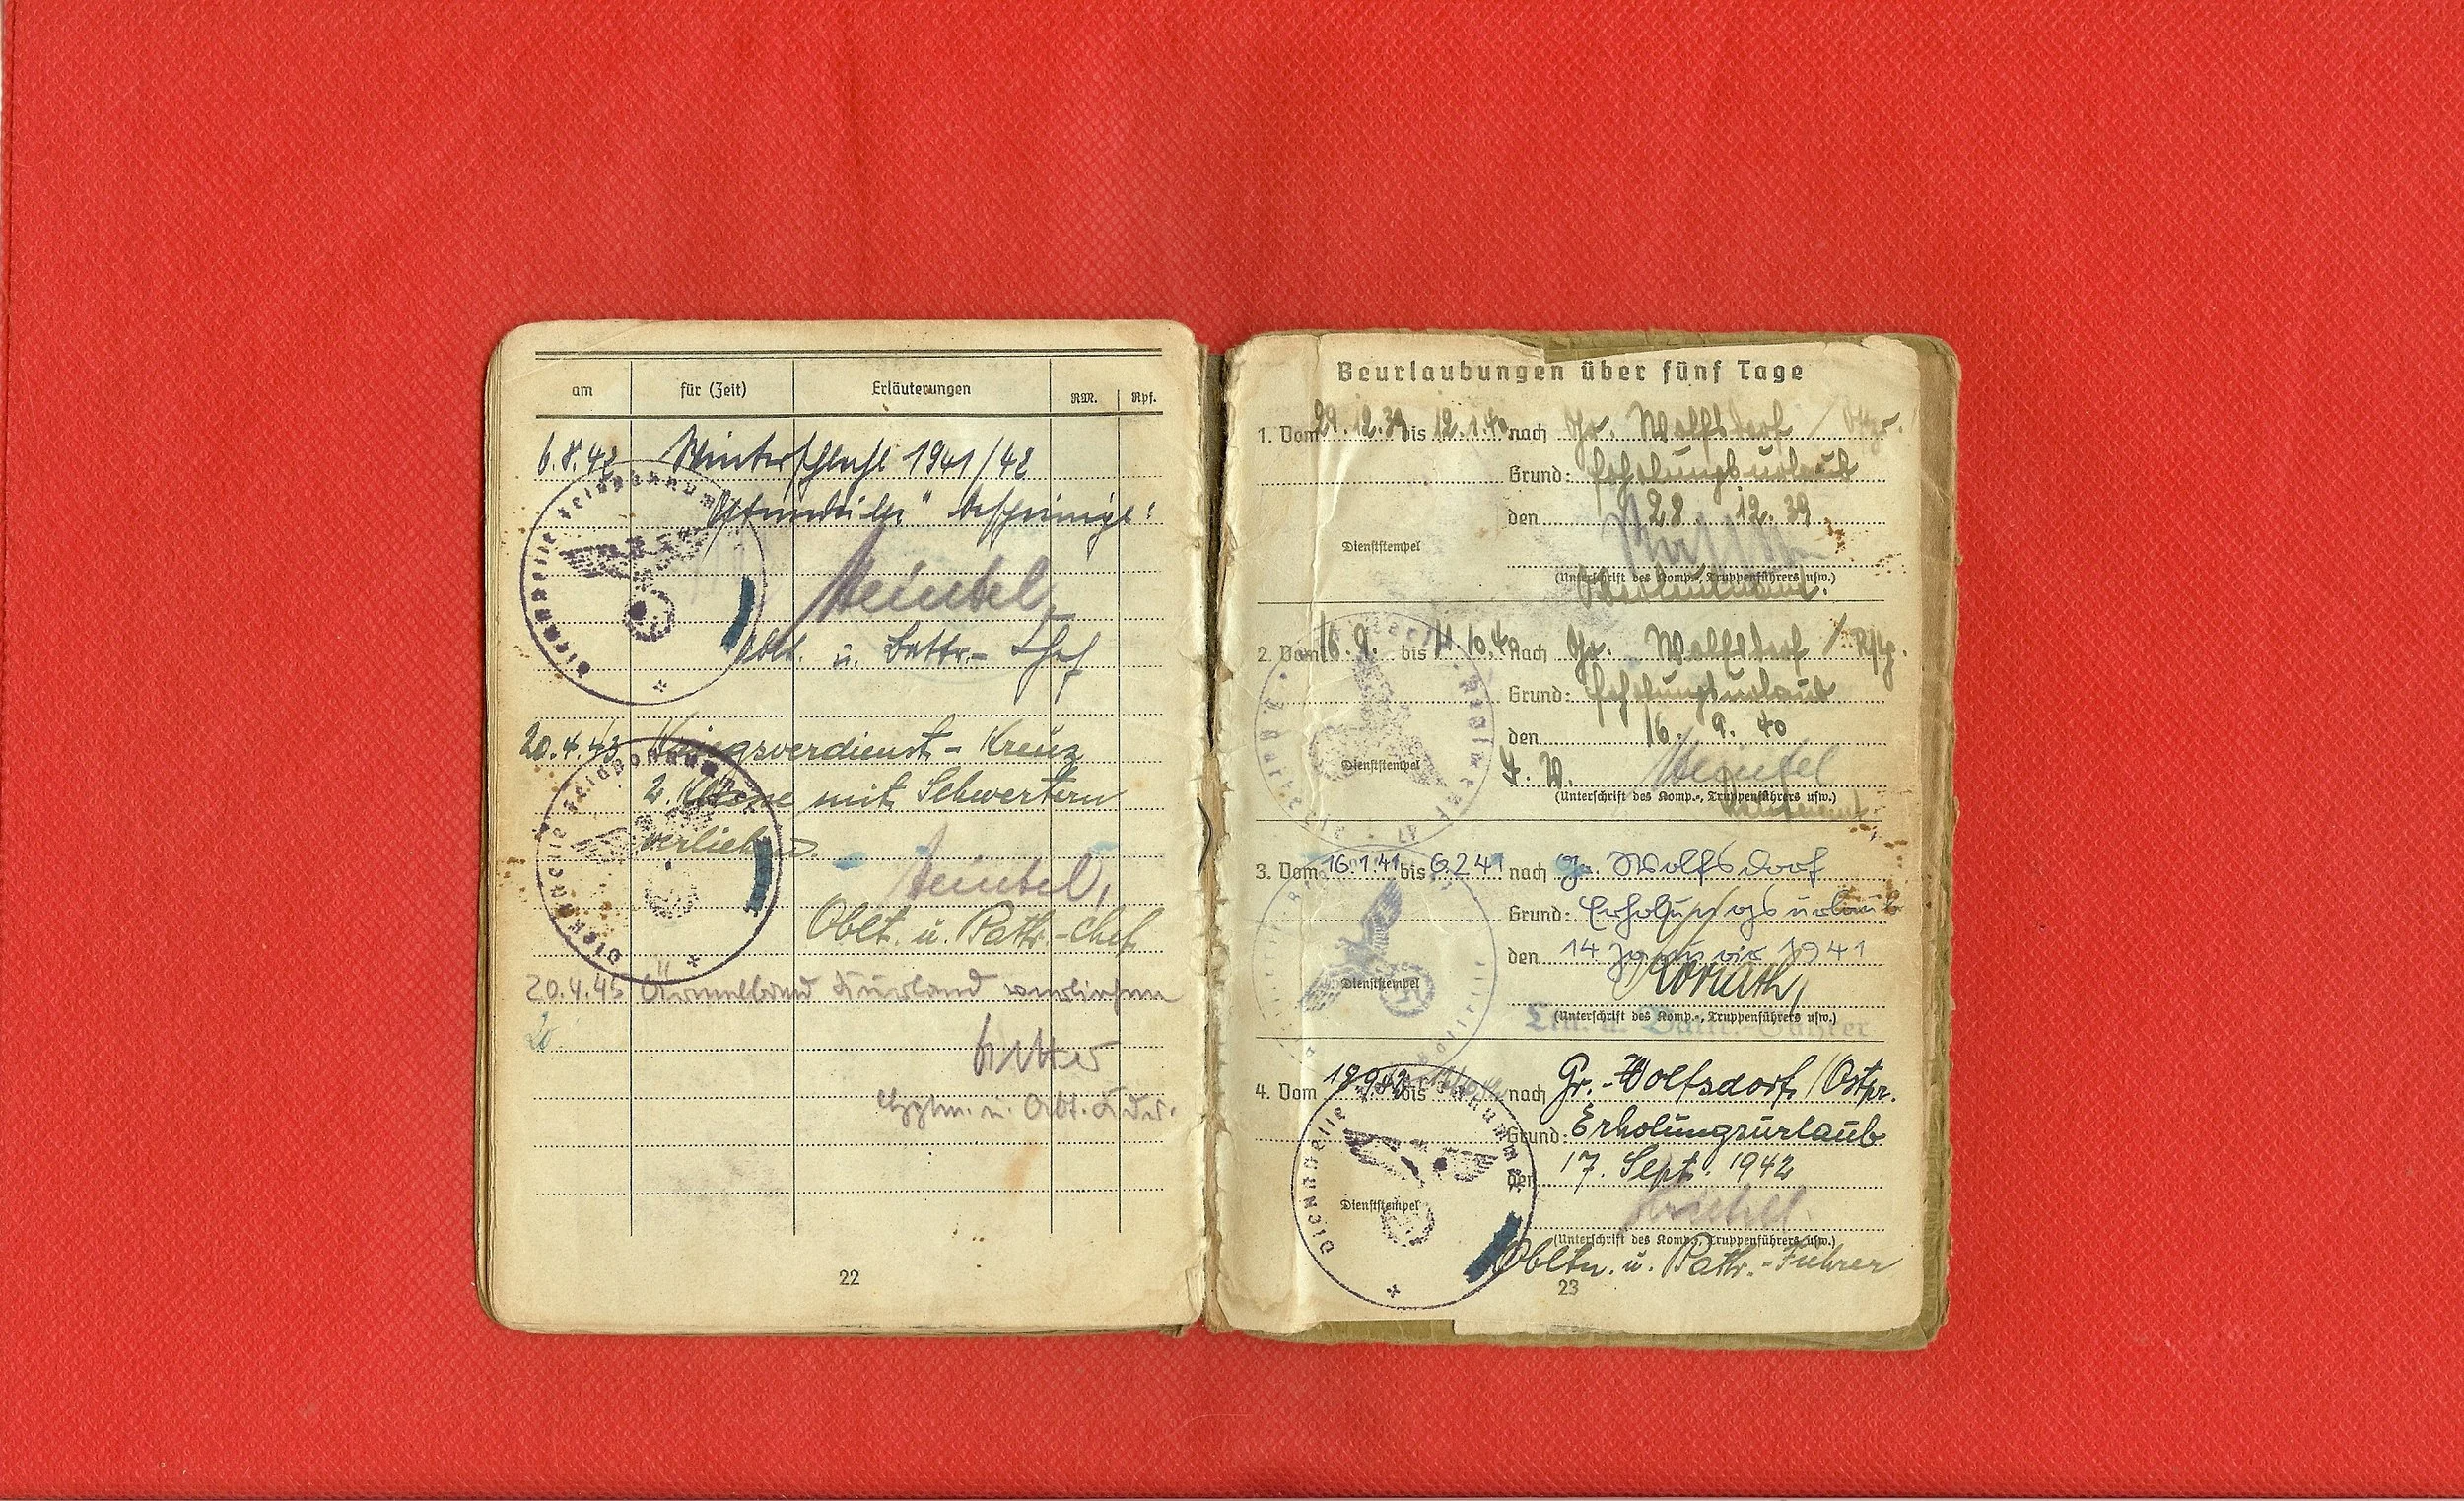 am für (Zeit) Erläuterungen RM. Rpf.
6.8.42 Winterschlacht 1941/42
"Ostmedaille" bescheinigt:
Heintel
Oblt. u. Battr.-Chef
20.4.43 Kriegsverdienst-Kreuz
2. Klasse mit Schwertern
verliehen.
Heintel,
Oblt. u. Battr.-Chef
20.4.45 Ärmelband Kurland verliehen
20.
Hptm. u. Abt. Kdr.
22
Dienststelle Feldpostnummer
Dienststelle Feldpostnummer
Beurlaubungen über fünf Tage
1. Vom 29.12.39 bis 12.1.40 nach Gr. Wolfsdorf / Ostpr.
Grund: Erholungsurlaub
den 28. 12. 39
Dienststempel
(Unterschrift des Komp.-, Truppenführers usw.)
Oberleutnant.
2. Vom 16.9. bis 11.10.40 nach Gr. Wolfsdorf / Ostp.
Grund: Erholungsurlaub
den 16. 9. 40
Dienststempel J. V. Heintel
(Unterschrift des Komp.-, Truppenführers usw.)
Leutnant
3. Vom 16.1.41 bis 6.2.41 nach Gr. Wolfsdorf
Grund: Erholungsurlaub
den 14 Januar 1941
Dienststempel
(Unterschrift des Komp.-, Truppenführers usw.)
Ltn. u. Battr.-Führer
4. Vom 19.9.42 bis nach Gr.-Wolfsdorf/Ostpr.
Grund: Erholungsurlaub
den 17. Sept. 1942
Dienststempel Heintel
(Unterschrift des Komp.-, Truppenführers usw.)
Obltn. u. Battr.-Führer
23
Dienststelle Feldpostnummer